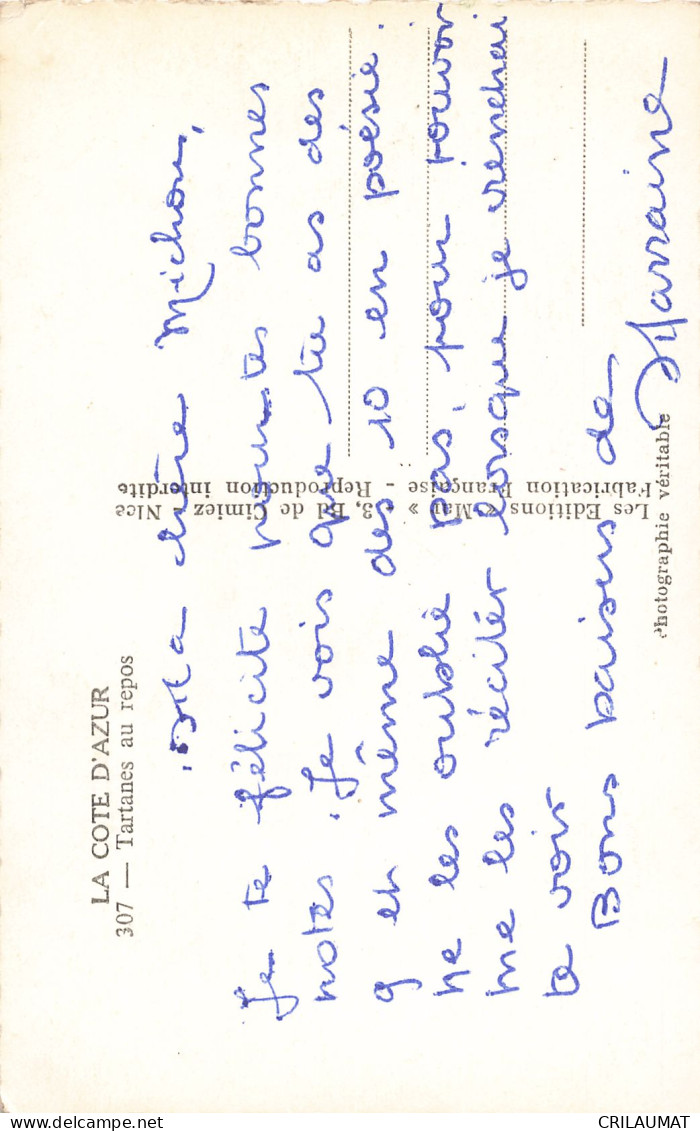 LA COTE D'AZUR
307 — Tartanes au repos
Ma chère Michou,
Je te félicite pour tes bonnes
notes. Je vois que tu as des
9 et même des 10 en poésie.
ne les oublie pas, pour pouvoir
me les réciter lorsque je viendrai
te voir
Bons baisers de
Marraine
Les Editions « Mar » - 3, Bd de Cimiez - Nice
Fabrication Française - Reproduction interdite
Photographie véritable
CRILAUMAT